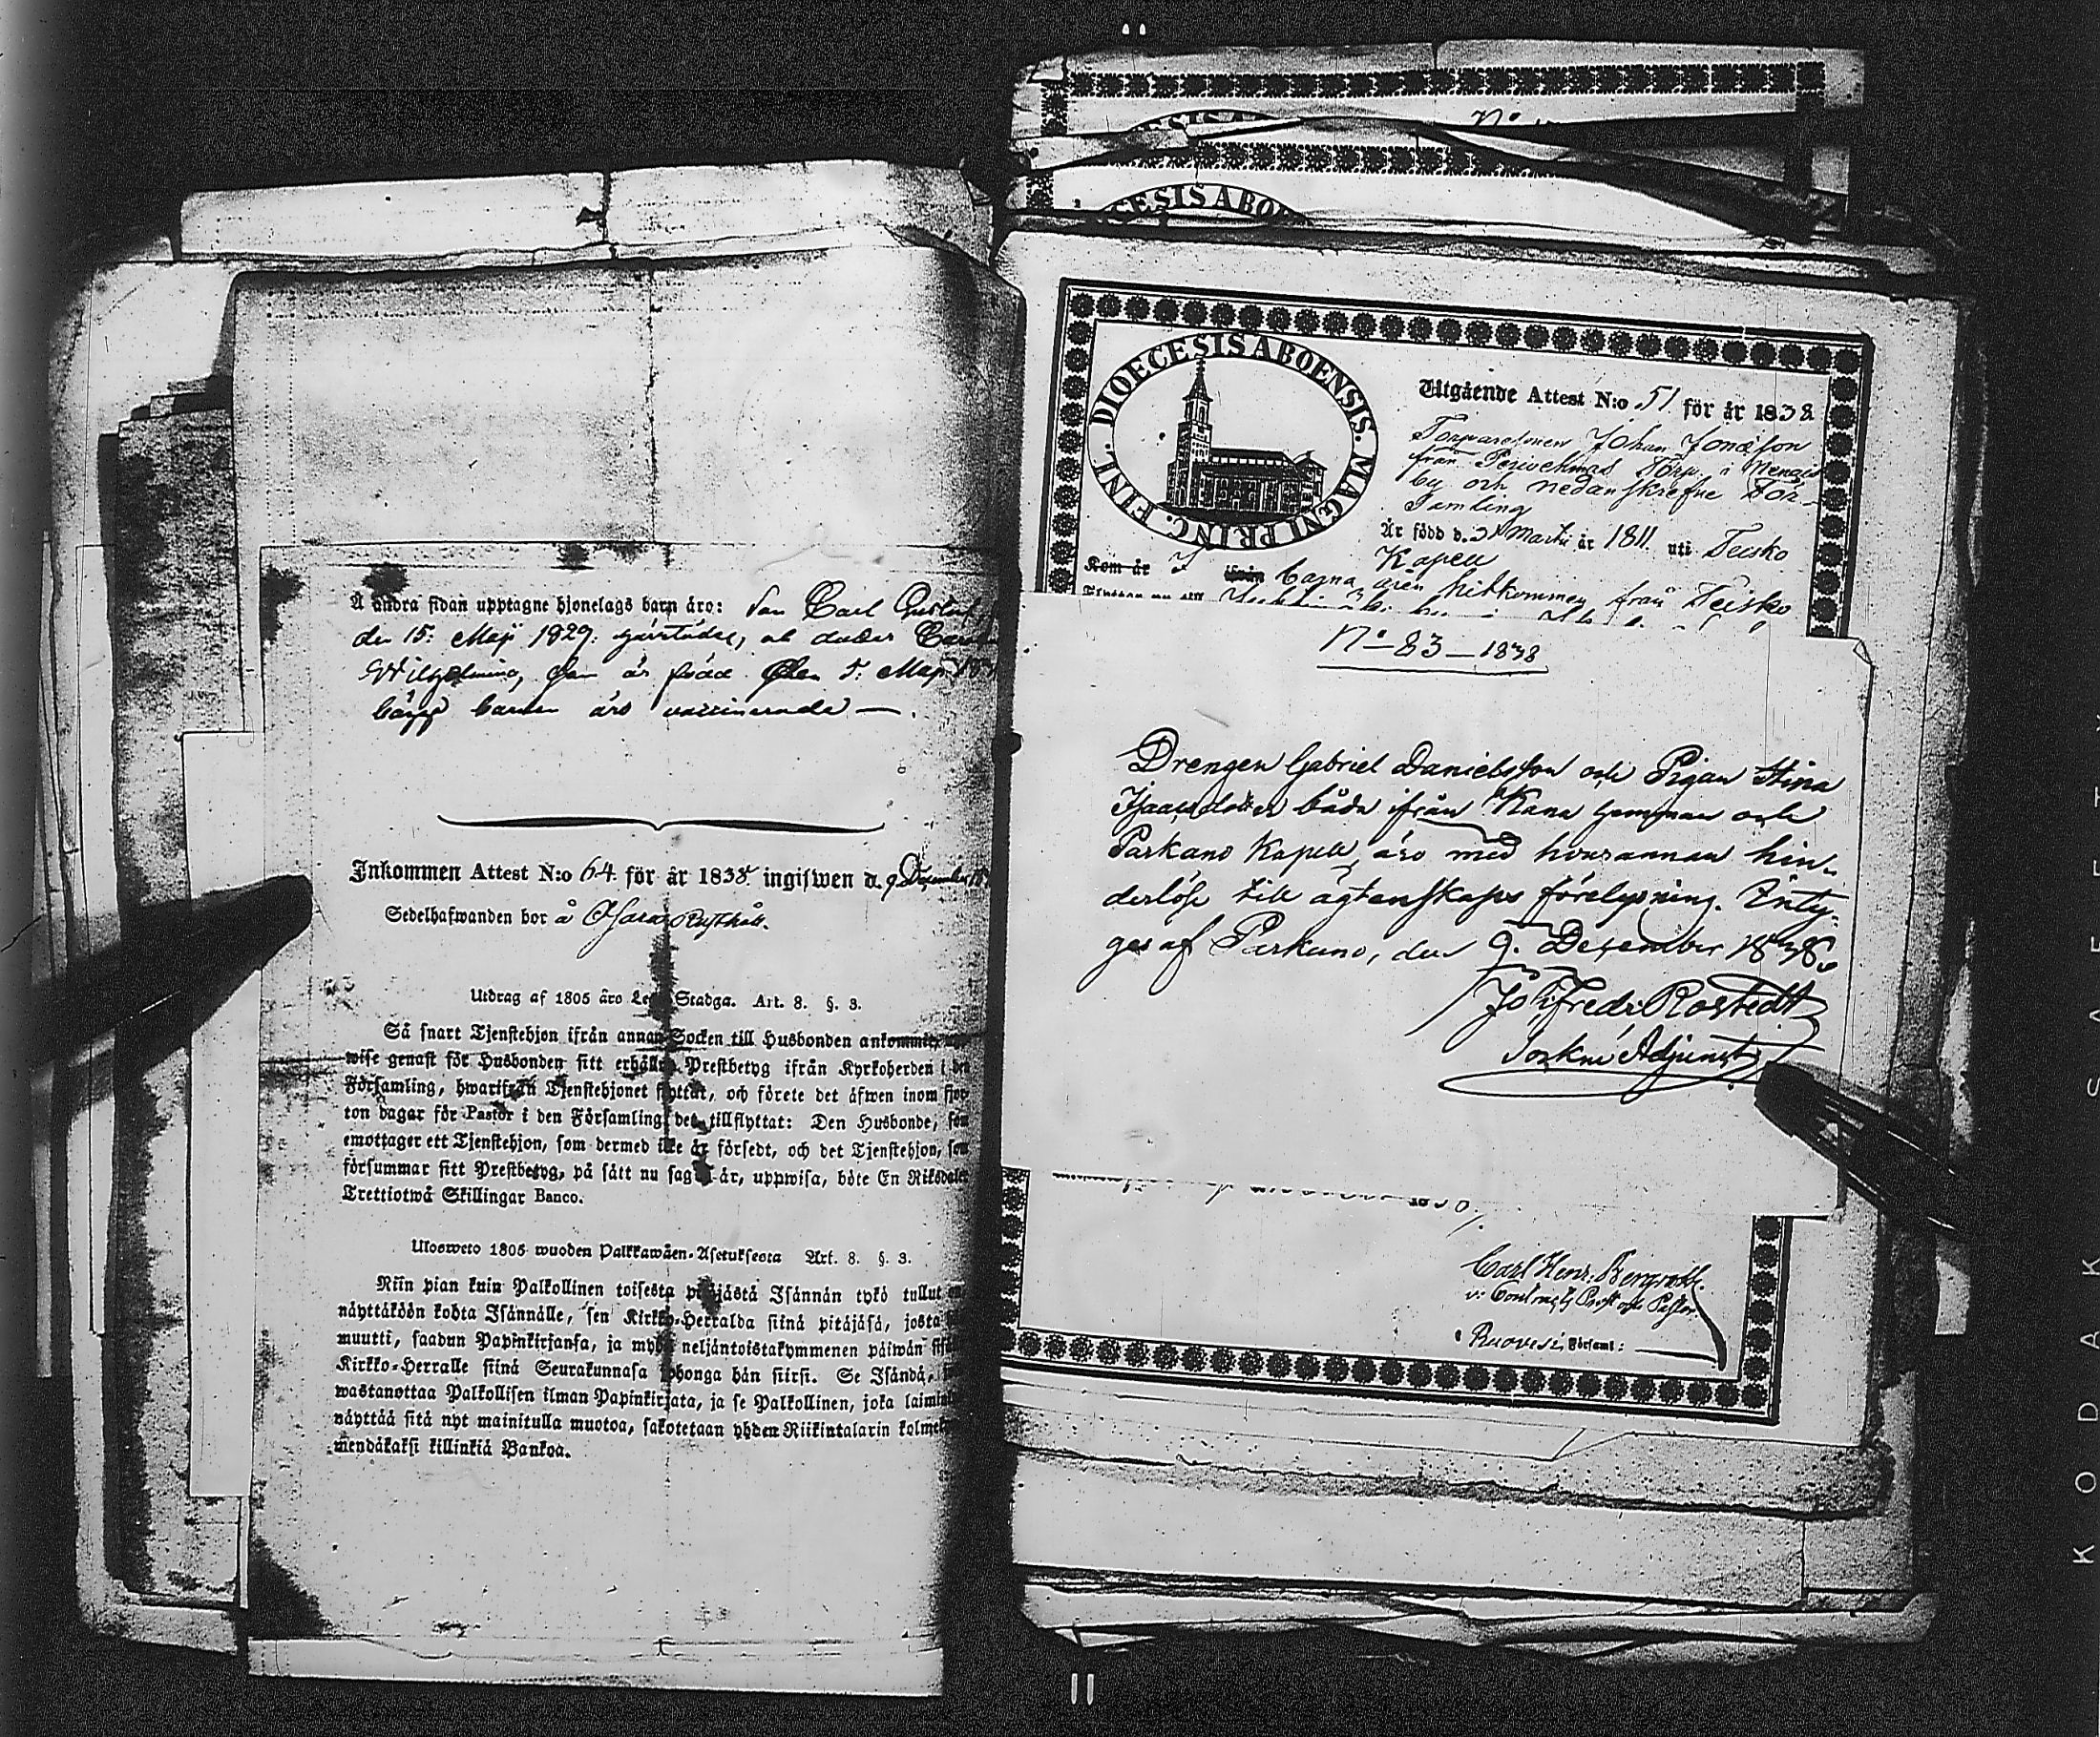 Å andra sidan upptagne hjonelags barn äro: Son Carl Gustaf,
den 15: Maji 1829. och dotter
Wilhelmina, hon är född den 5: Maji
bägge barnen äro vaccinerade —.
Inkommen Attest N:o 64 för år 1838 ingifwen d. 9 December
Sedelhafwanden bor å Rusthåll.
Utdrag af 1805 års Lego-Stadga. Art. 8. §. 3.
Så snart Tjenstehjon ifrån annan Socken till Husbonden ankommit,
wise genast för Husbonden sitt erhållne Prestbetyg ifrån Kyrkoherden i den
Församling, hwarifrån Tjenstehjonet flyttat, och förete det äfwen inom fjor-
ton dagar för Pastor i den Församling det tillflyttat: Den Husbonde, som
emottager ett Tjenstehjon, som dermed icke är försedt, och det Tjenstehjon, som
försummar sitt Prestbetyg, på sätt nu sagdt är, uppwisa, böte En Riksdaler
Trettiotwå Skillingar Banco.
Ulosweto 1805 wuoden Palkkawäen-Asetuksesta Art. 8. §. 3.
Niin pian kuin Palkollinen toisesta pitäjästä Isännän tykö tullut on,
näyttäköön kohta Isännälle, sen Kirkko-Herralda siinä pitäjäsä, josta
muutti, saadun Papinkirjansa, ja myös neljäntoistakymmenen päiwän sisällä
Kirkko-Herralle siinä Seurakunnasa johonga hän siirsi. Se Isändä,
wastanottaa Palkollisen ilman Papinkirjata, ja se Palkollinen, joka laimin
näyttää sitä nyt mainitulla muotoa, sakotetaan yhden Riikintalarin kolme
mendäkaksi killinkiä Bankoa.
N:o
CESIS ABO
DIOECESIS ABOENSIS. MAGNI PRINC. FINL.
Utgående Attest N:o 51 för år 1838
Torparesonen Johan Jonasson
från Torp, i
by och nedanskrefne För-
samling
Är född d. Martii år 1811. uti Teisko
Kapell
Kom år ifrån hitkommen från Teisko
N:o 83 — 1838
Drengen Gabriel Danielsson och Pigan Stina
Isaacsdotter båda ifrån Kana hemman och
Parkano Kapell, äro med hvarannan hin-
derlöse till ägtenskaps förelysning. Inty-
ges af Parkano, den 9. December 1838.
Joh: Fredr: Rostedt
Sockne Adjunct
Carl Henr: Bergroth.
v: Contracts Prost och Pastor
i Ruovesi Församl:
KODAK SAFETY